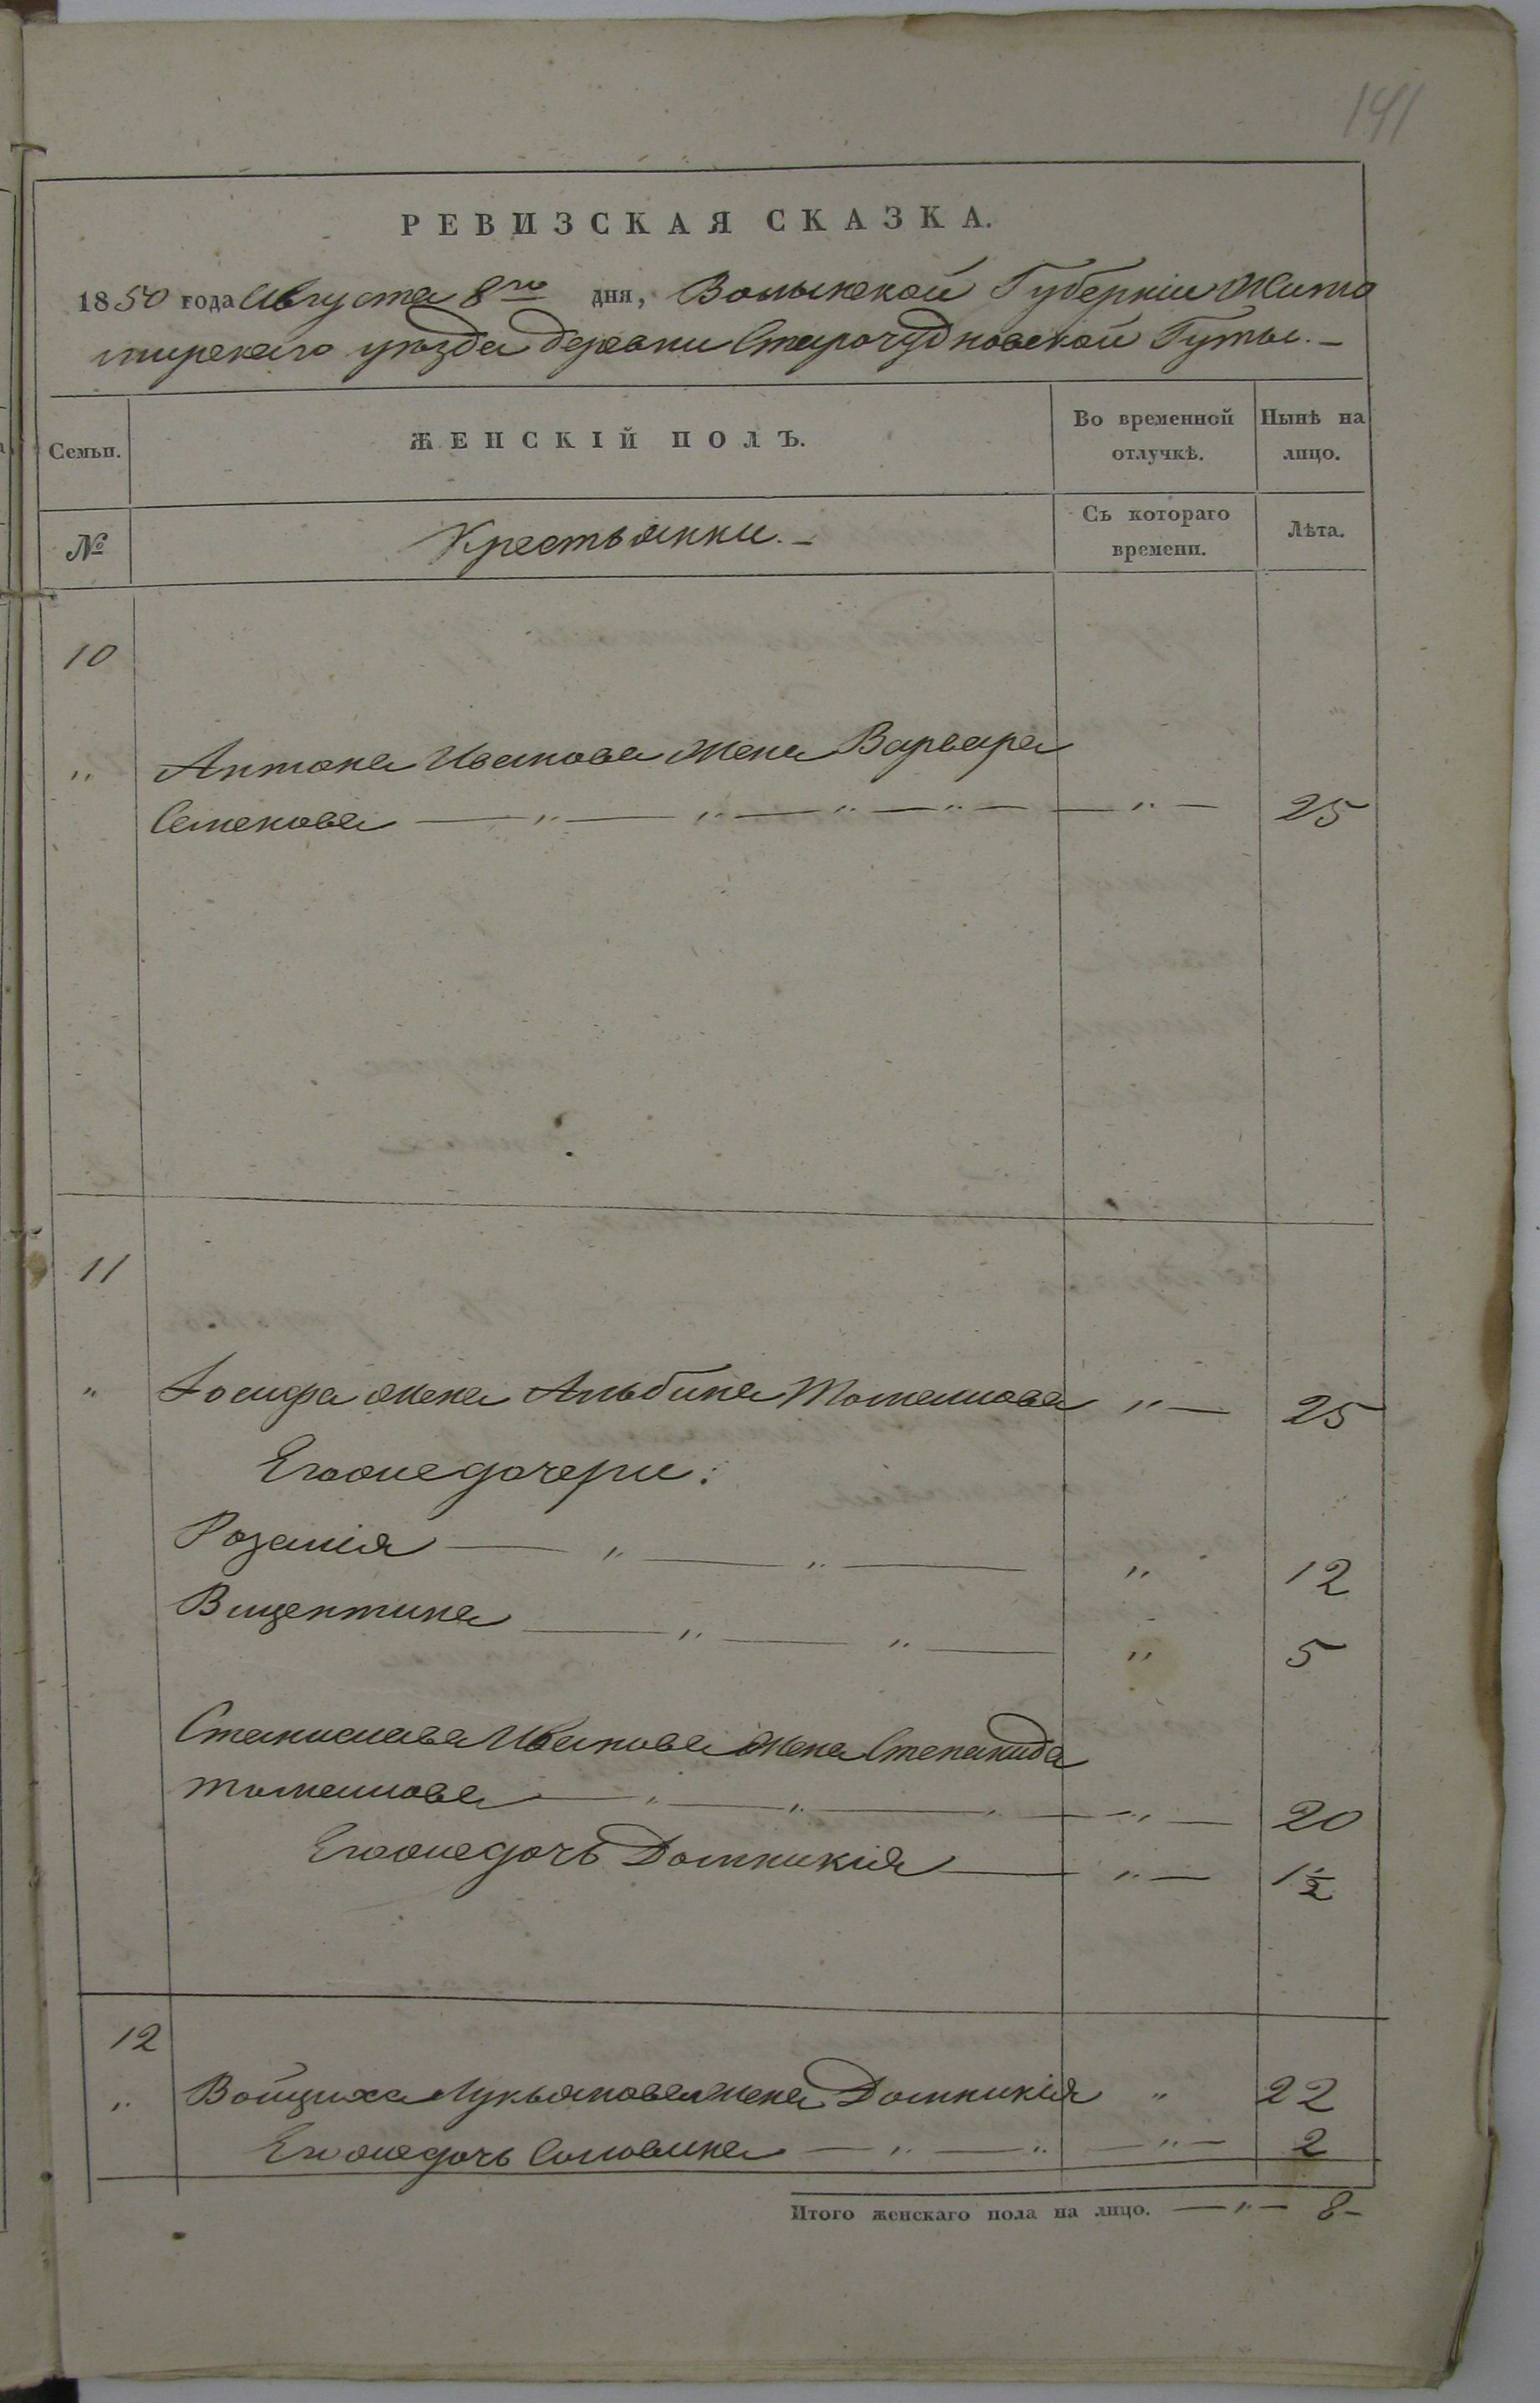 141
РЕВИЗСКАЯ СКАЗКА.
1850 года Августа 8го дня, Волынской Губерніи Жито
мирскаго уѣзда деревни Старочудновской Гуты. —
Семьи. ЖЕНСКІЙ ПОЛЪ. Во временной отлучкѣ. Нынѣ на лицо.
№ Крестьянки. — Съ котораго времени. Лѣта.
10
" Антона Иванова жена Варвара
Семенова — " — " — " — " — — " — 25
11
" Іосифа жена Альбина Томашова " — 25
Егоже дочери:
Розалія — " — " — " 12
Вицентина — " — " — " 5
Станислава Иванова жена Степанида
Томашова — " — " — " — — " — 20
Егоже дочь Домникія — — " — 1½
12
" Войциха Лукьянова жена Домникія " 22
Егоже дочь Соловина — " — " — " — 2
Итого женскаго пола на лицо. — " — 8 —